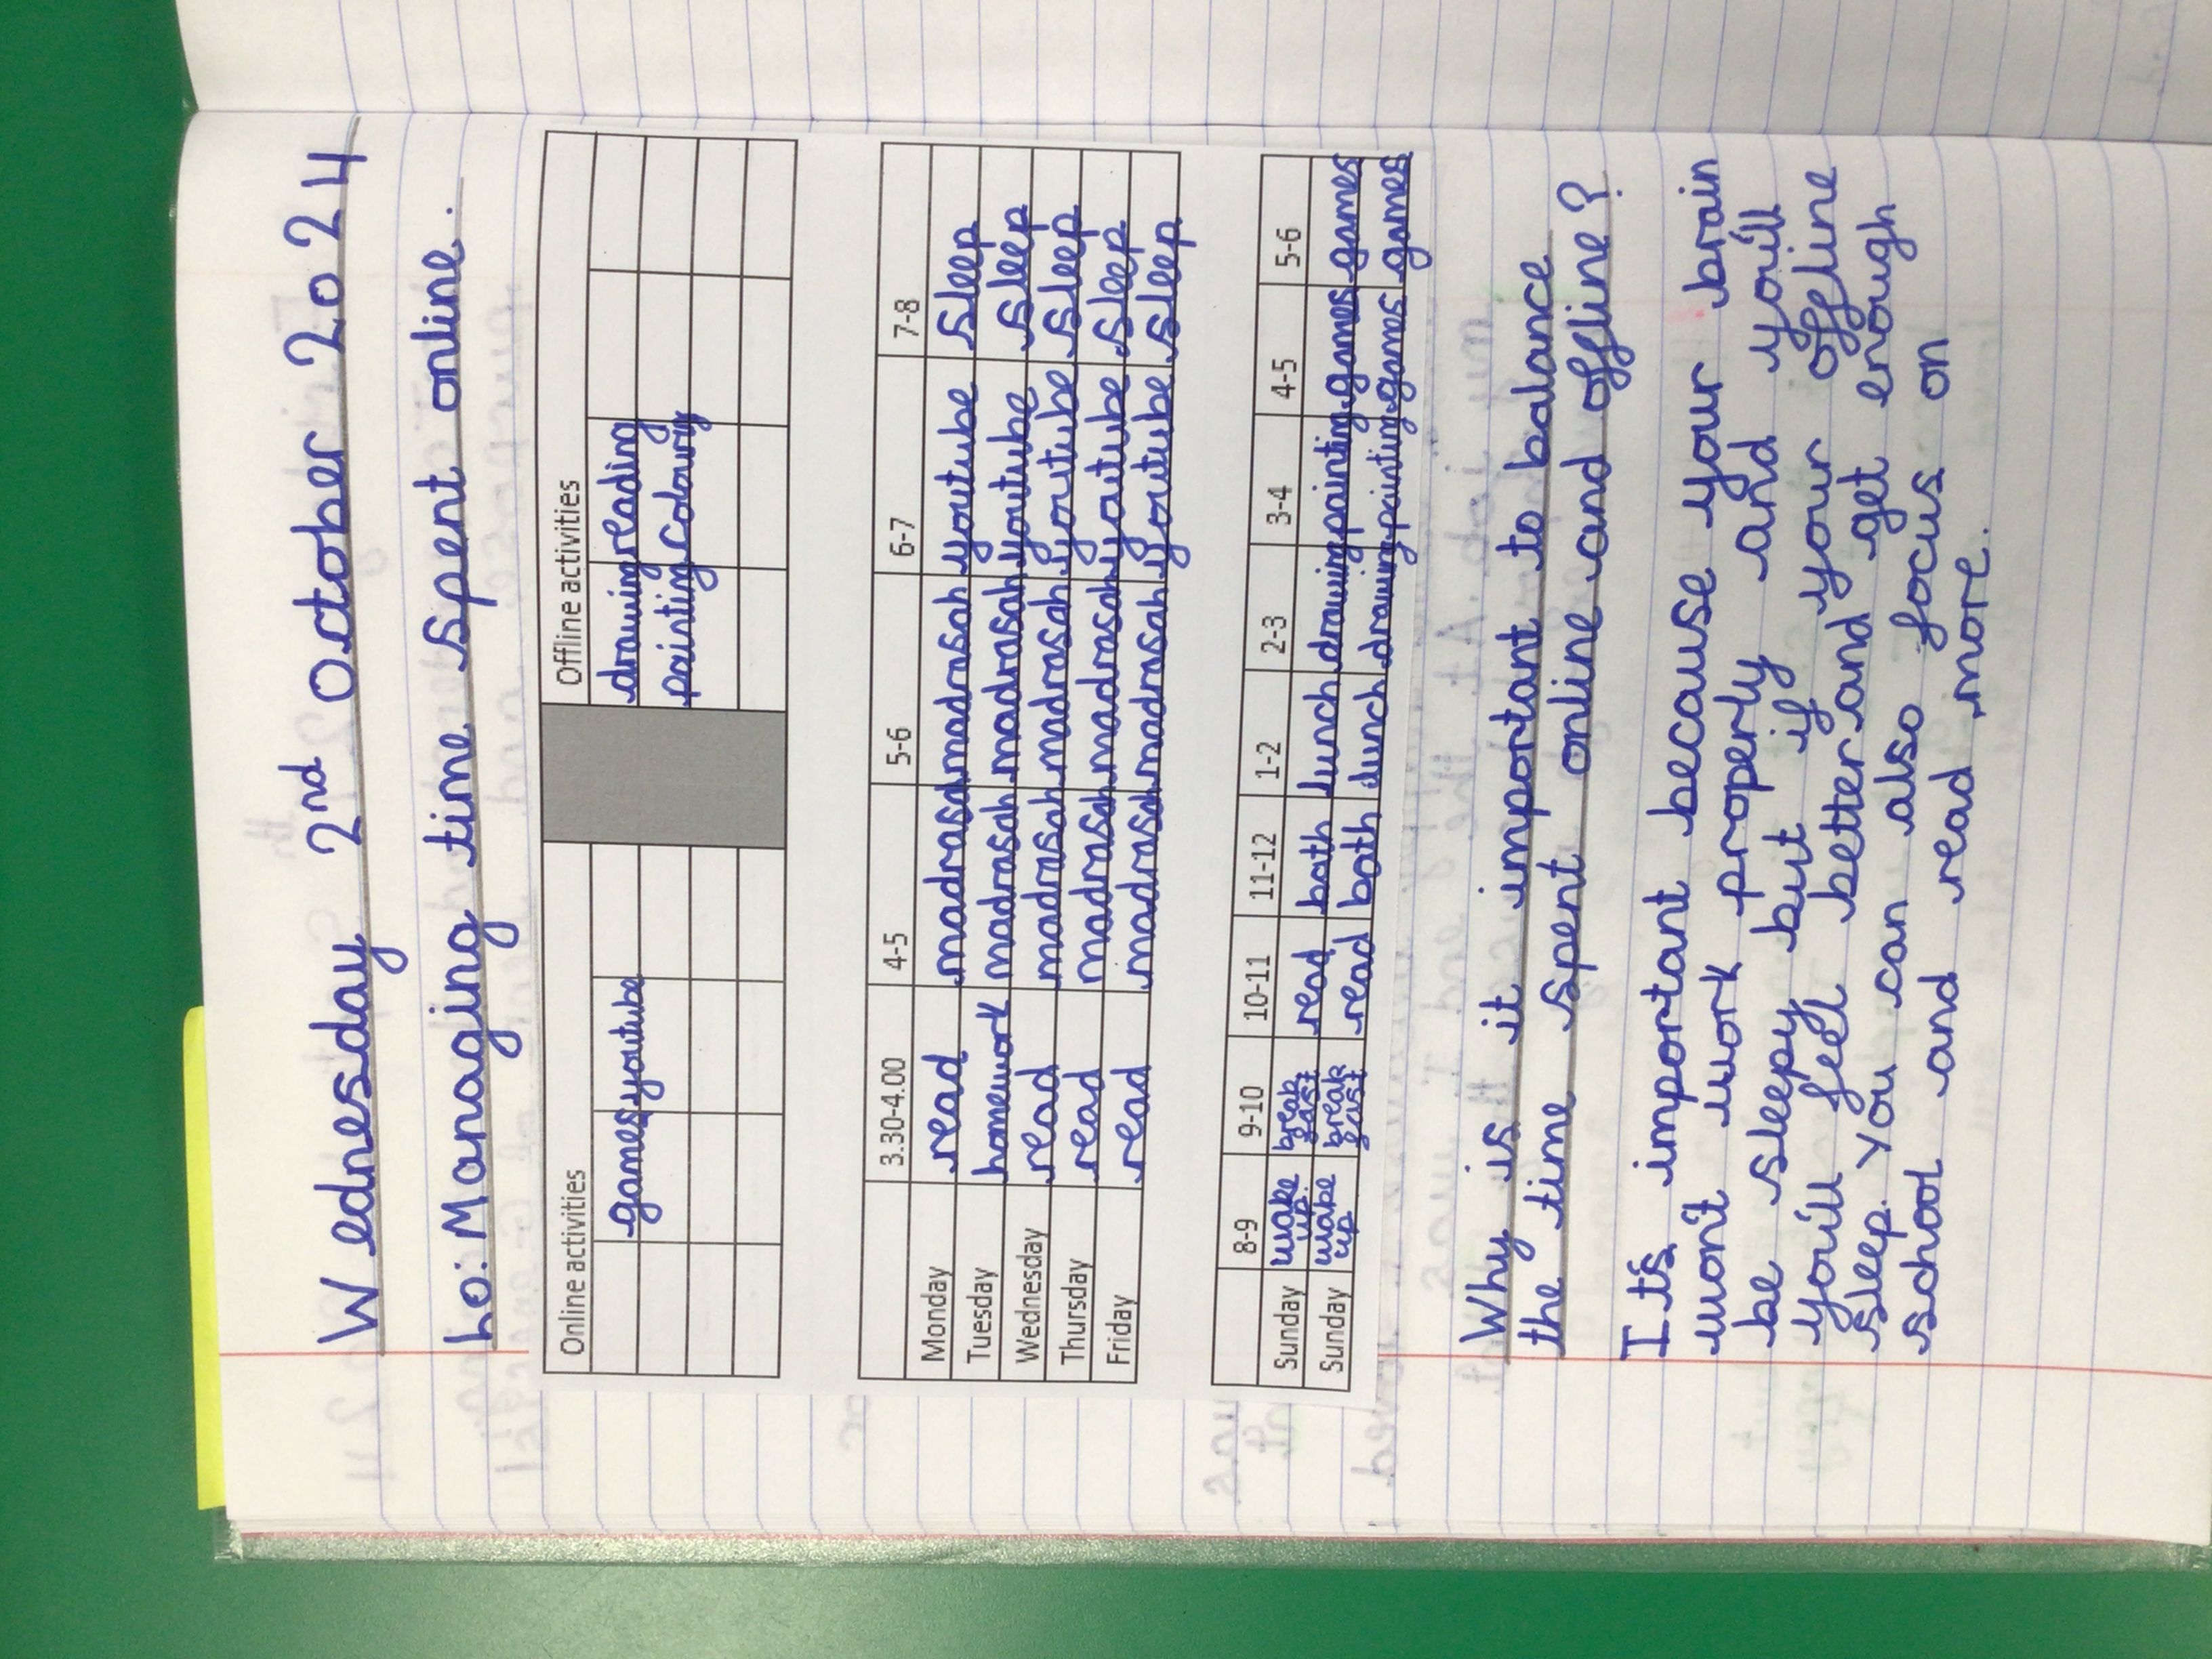 Wednesday 2nd October 2024
Lo: Managing time spent online.
Online activities Offline activities
games youtube drawing reading
painting colouring
3.30-4.00 4-5 5-6 6-7 7-8
Monday read madrasah madrasah youtube sleep
Tuesday homework madrasah madrasah youtube sleep
Wednesday read madrasah madrasah youtube sleep
Thursday read madrasah madrasah youtube sleep
Friday read madrasah madrasah youtube sleep
8-9 9-10 10-11 11-12 1-2 2-3 3-4 4-5 5-6
Sunday wake up break fast read bath lunch drawing painting games games
Sunday wake up break fast read bath lunch drawing painting games games
Why is it important to balance
the time spent online and offline?
It's important because your brain
won't work properly and you'll
be sleepy but if your offline
you'll feel better and get enough
sleep. You can also focus on
school and read more.